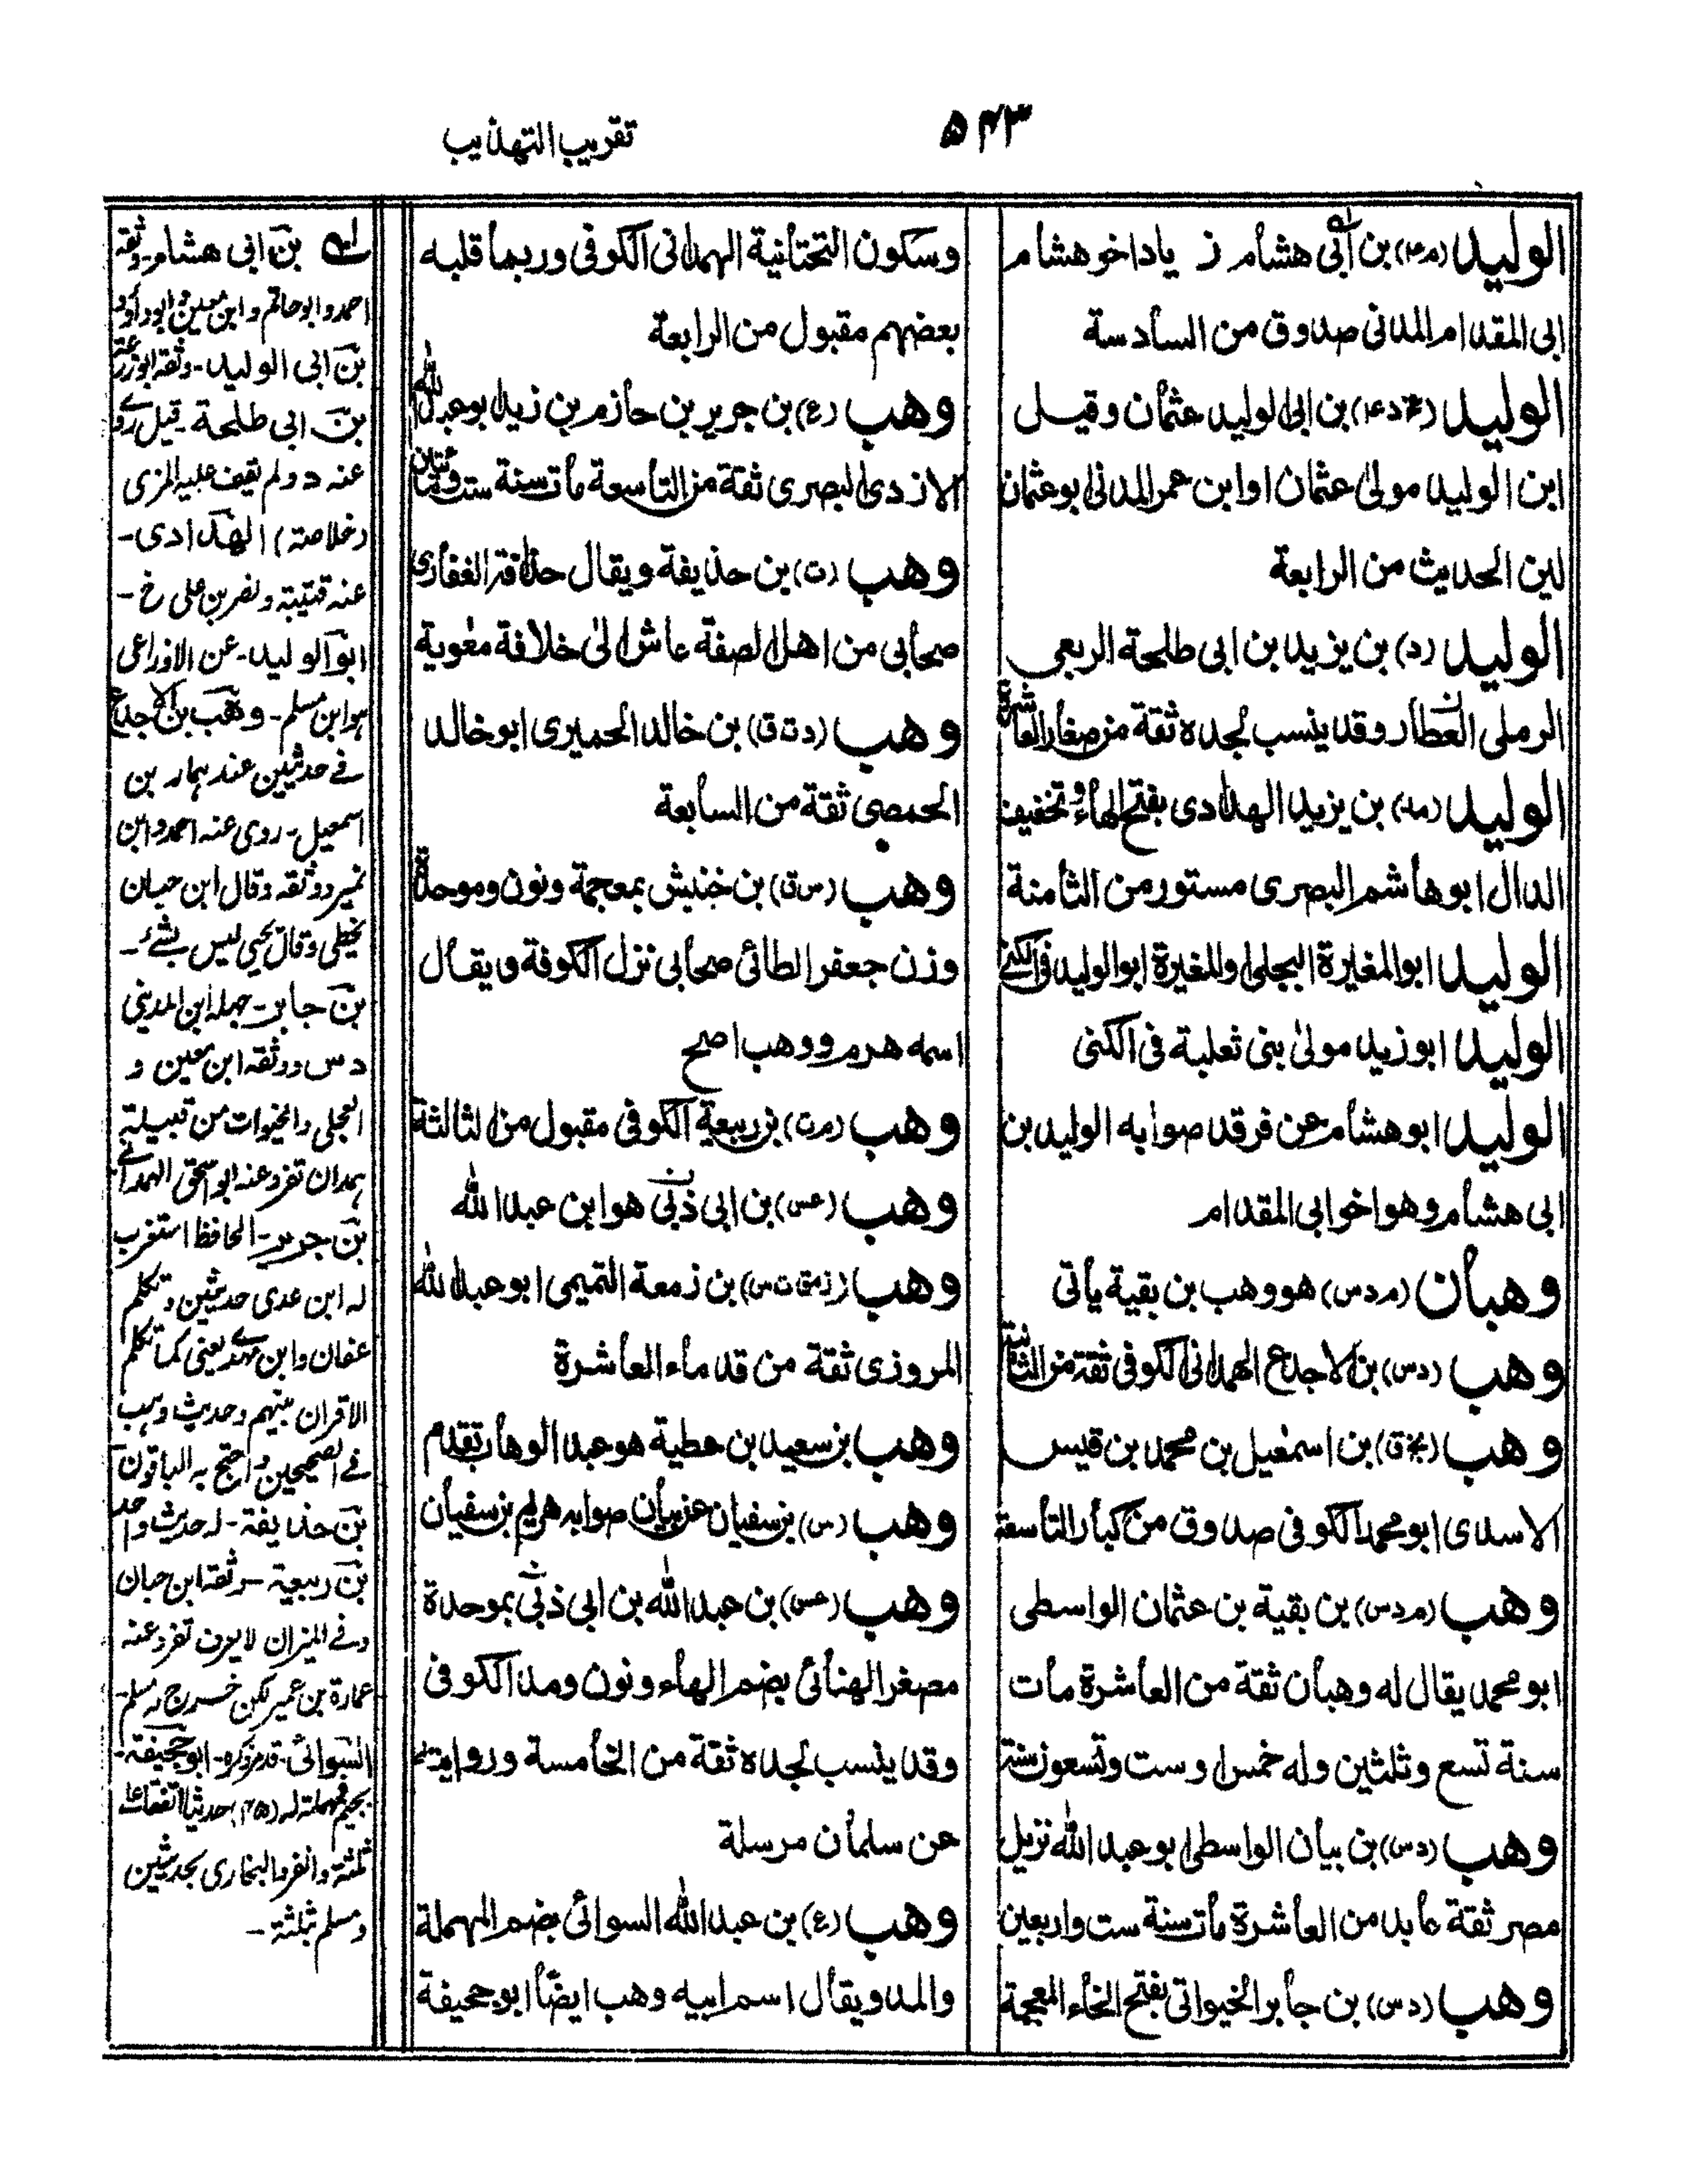 تقريب التهذيب
۵۴۳
الوليد (م۴) بن أبي هشام زياد اخو هشام
ابي المقدام المدني صدوق من السادسة
الوليد بن ابي الوليد عثمان وقيل
ابن الوليد مولى عثمان او ابن عمر المدني ابو عثمان
لين الحديث من الرابعة
الوليد (د) بن يزيد بن ابي طلحة الربعي
الرملي العطار وقد ينسب لجده ثقة من صغار العاشرة
الوليد (مد) بن يزيد الهدادي بفتح الهاء وتخفيف
الدال ابو هاشم البصري مستور من الثامنة
الوليد ابو المغيرة البجلي او المغيرة ابو الوليد في الكنى
الوليد ابو زيد مولى بني ثعلبة في الكنى
الوليد ابو هشام عن فرقد صوابه الوليد بن
ابي هشام وهو اخو ابي المقدام
وهبان (م د س) هو وهب بن بقية يأتي
وهب (د س) بن الاجدع الهمداني الكوفي ثقة من الثانية
وهب (بخ ق) بن اسمعيل بن محمد بن قيس
الاسدي ابو محمد الكوفي صدوق من كبار التاسعة
وهب (م د س) بن بقية بن عثمان الواسطي
ابو محمد يقال له وهبان ثقة من العاشرة مات
سنة تسع وثلثين وله خمس او ست وتسعون سنة
وهب (د س) بن بيان الواسطي ابو عبد الله نزيل
مصر ثقة عابد من العاشرة مات سنة ست واربعين
وهب (د س) بن جابر الخيواني بفتح الخاء المعجمة
وسكون التحتانية الهمداني الكوفي وربما قلبه
بعضهم مقبول من الرابعة
وهب (ع) بن جرير بن حازم بن زيد ابو عبد الله
الازدي البصري ثقة من التاسعة مات سنة ست ومئتين
وهب (ت) بن حذيفة ويقال حذافة الغفاري
صحابي من اهل الصفة عاش الى خلافة معوية
وهب (د ت ق) بن خالد الحميري ابو خالد
الحمصي ثقة من السابعة
وهب (س ق) بن خنبش بمعجمة ونون وموحدة
وزن جعفر الطائي صحابي نزل الكوفة ويقال
اسمه هرم ووهب اصح
وهب (م ت) بن ربيعة الكوفي مقبول من الثالثة
وهب (عس) بن ابي ذبي هو ابن عبد الله
وهب (مق ت س) بن زمعة التميمي ابو عبد الله
المروزي ثقة من قدماء العاشرة
وهب بن سعيد بن عطية هو عبد الوهاب تقدم
وهب (س) بن سفيان عن بيان صوابه هريم بن سفيان
وهب (عس) بن عبد الله بن ابي ذبي بموحدة
مصغر الهنائي بضم الهاء ونون ومد الكوفي
وقد ينسب لجده ثقة من الخامسة وروايته
عن سلمان مرسلة
وهب (ع) بن عبد الله السوائي بضم المهملة
والمد ويقال اسم ابيه وهب ايضا ابو جحيفة
بن ابي هشام - وثقه
احمد وابو حاتم وابن معين وابو داود
بن ابي الوليد - وثقه ابو زرعة
بن ابي طلحة - قيل روى
عنه د ولم يقف عليه المزي
(خلاصة) الهدادي -
عنه قتيبة ونصر بن علي خ -
ابو الوليد - عن الاوزاعي
هو ابن مسلم - وهب بن الاجدع
في حديثين عند
اسمعيل - روى عنه احمد وابن
نمير ووثقه وقال ابن حبان
يخطي وقال يحيى ليس بشيء -
بن جابر - جهله ابن المديني
د س ووثقه ابن معين و
العجلي والخيوان من قبيلة
همدان تفرد عنه ابو اسحق الهمداني
بن جرير - الحافظ استغرب
له ابن عدي حديثين وتكلم
عفان وابن مهدي يعني كما تكلم
الاقران بينهم وحديث وهب
في الصحيحين واحتج به الباقون
بن حذيفة - له حديث واحد
بن ربيعة - وثقه ابن حبان
وفي الميزان لا يعرف تفرد عنه
عمارة بن عمير لكن خرج له مسلم -
السوائي - قد مر ذكره - ابو جحيفة -
بجيم فمهملة له (۴۵) حديثا اتفقا على
ثلثة وانفرد البخاري بحديثين
ومسلم بثلثة -